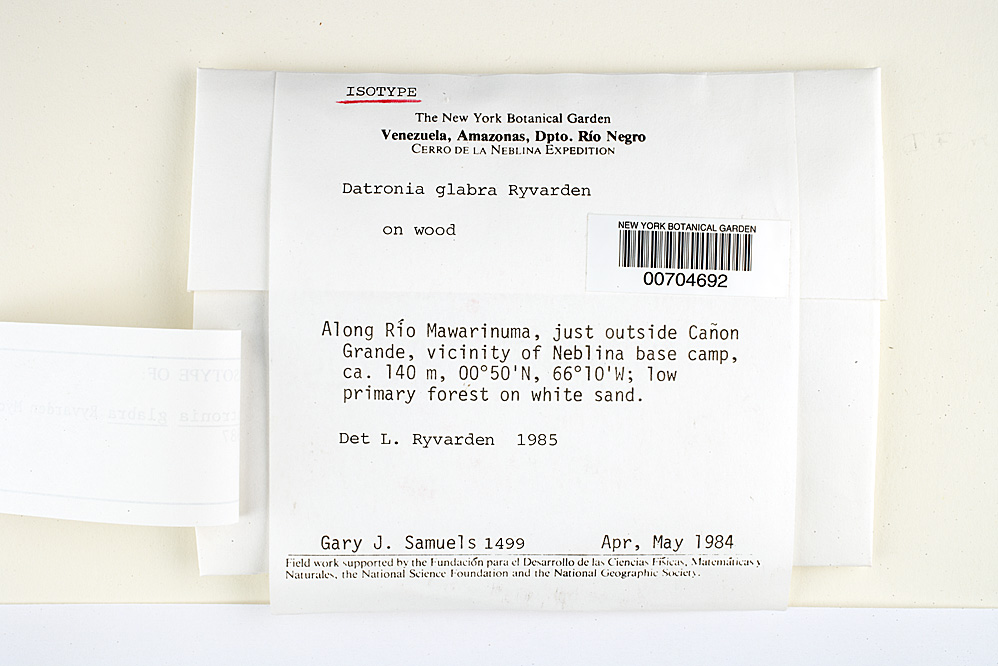 ISOTYPE
The New York Botanical Garden
Venezuela, Amazonas, Dpto. Río Negro
CERRO DE LA NEBLINA EXPEDITION
Datronia glabra Ryvarden
on wood
NEW YORK BOTANICAL GARDEN
00704692
Along Río Mawarinuma, just outside Cañon
Grande, vicinity of Neblina base camp,
ca. 140 m, 00°50'N, 66°10'W; low
primary forest on white sand.
Det L. Ryvarden 1985
Gary J. Samuels 1499 Apr, May 1984
Field work supported by the Fundación para el Desarrollo de las Ciencias Físicas, Matemáticas y
Naturales, the National Science Foundation and the National Geographic Society.